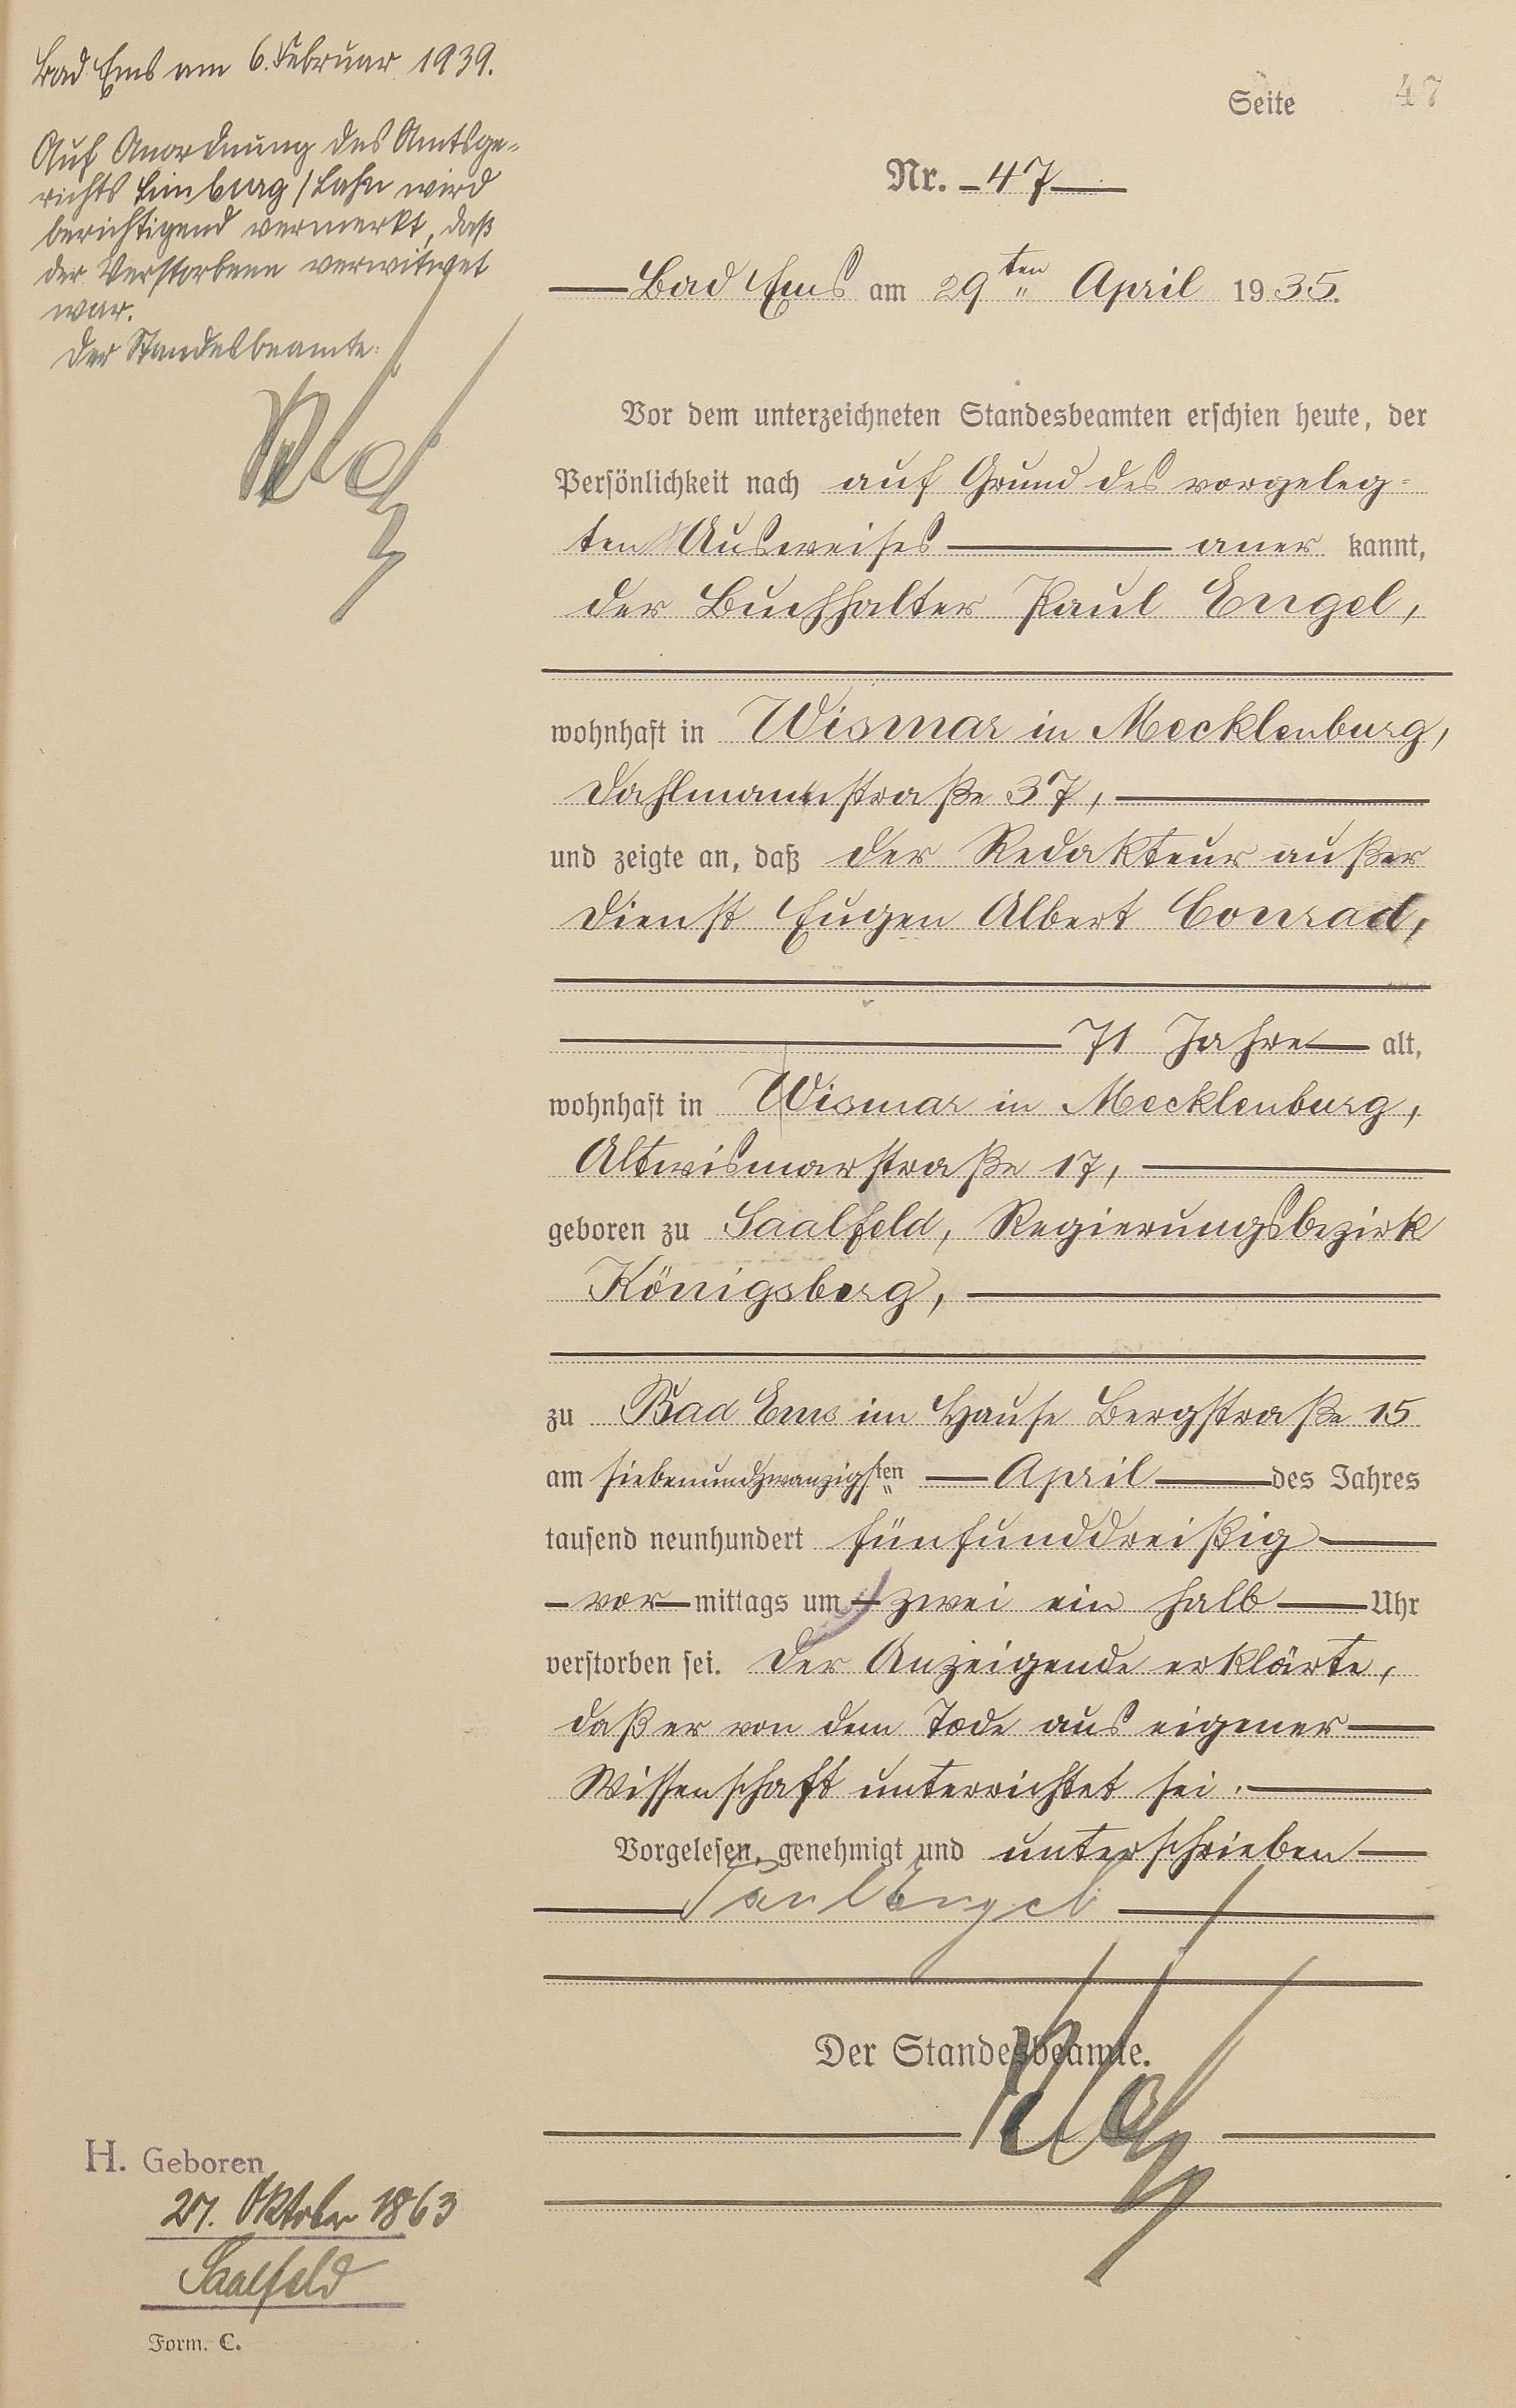 Bad Ems am 6. Februar 1939.
Auf Anordnung des Amtsge-
richts Limburg/Lahn wird
berichtigend vermerkt, daß
der Verstorbene verwitwet
war.
Der Standesbeamte:
Seite 47
Nr. 47
Bad Ems am 29ten April 1935.
Vor dem unterzeichneten Standesbeamten erschien heute, der
Persönlichkeit nach auf Grund des vorgeleg-
ten Ausweises aner kannt,
der Buchhalter Paul Engel,
wohnhaft in Wismar in Mecklenburg,
Dahlmannstraße 37,
und zeigte an, daß der Redakteur außer
Dienst Eugen Albert Conrad,
71 Jahre alt,
wohnhaft in Wismar in Mecklenburg,
Altwismarstraße 17,
geboren zu Saalfeld, Regierungsbezirk
Königsberg,
zu Bad Ems im Hause Bergstraße 15
am siebenundzwanzigsten April des Jahres
tausend neunhundert fünfunddreißig
vor mittags um zwei ein halb Uhr
verstorben sei. Der Anzeigende erklärte,
daß er von dem Tode aus eigener
Wissenschaft unterrichtet sei.
Vorgelesen, genehmigt und unterschrieben
Paul Engel
Der Standesbeamte.
H. Geboren
27. Oktober 1863
Saalfeld
Form. C.